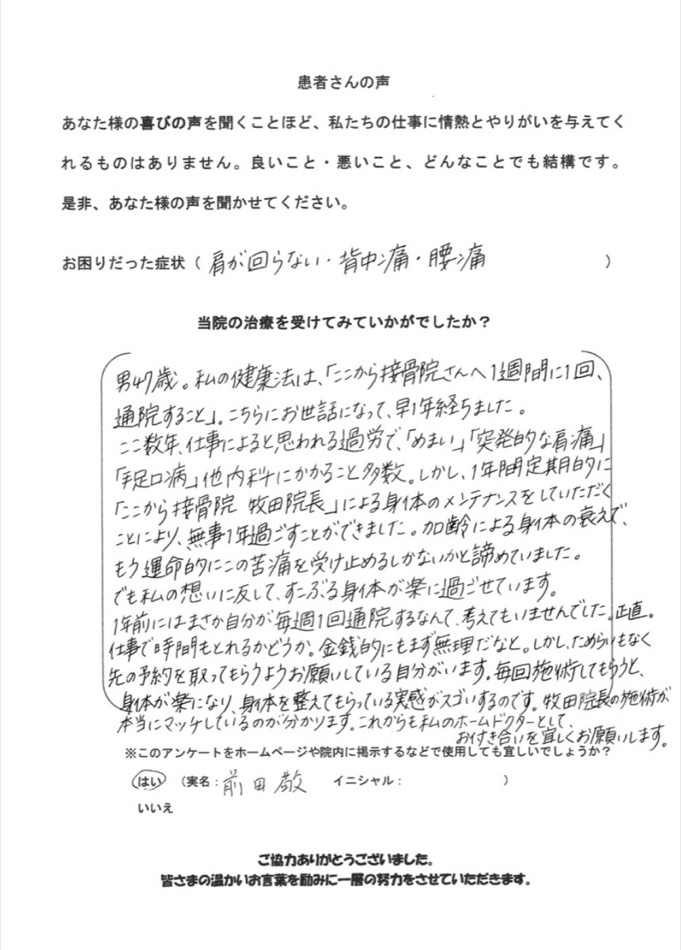 患者さんの声
あなた様の喜びの声を聞くことほど、私たちの仕事に情熱とやりがいを与えてく
れるものはありません。良いこと・悪いこと、どんなことでも結構です。
是非、あなた様の声を聞かせてください。
お困りだった症状（ 肩が回らない・背中痛・腰痛 ）
当院の治療を受けてみていかがでしたか？
男47歳。私の健康法は、「ここから接骨院さんへ1週間に1回、
通院すること」。こちらにお世話になって、早1年経ちました。
ここ数年、仕事によると思われる過労で、「めまい」「突発的な肩痛」
「手足口病」他内科にかかること多数。しかし、1年間定期的に
「ここから接骨院 牧田院長」による身体のメンテナンスをしていただく
ことにより、無事1年過ごすことができました。加齢による身体の衰えで、
もう運命的にこの苦痛を受け止めるしかないかと諦めていました。
でも私の想いに反して、すこぶる身体が楽に過ごせています。
1年前にはまさか自分が毎週1回通院するなんて、考えてもいませんでした。正直。
仕事で時間もとれるかどうか。金銭的にもまず無理だなと。しかし、ためらいもなく
先の予約を取ってもらうようお願いしている自分がいます。毎回施術してもらうと、
身体が楽になり、身体を整えてもらっている実感がスゴいするのです。牧田院長の施術が
本当にマッチしているのが分かります。これからも私のホームドクターとして、
お付き合いを宜しくお願いします。
※このアンケートをホームページや院内に掲示するなどで使用しても宜しいでしょうか？
はい （実名：前田敬 イニシャル： ）
いいえ
ご協力ありがとうございました。
皆さまの温かいお言葉を励みに一層の努力をさせていただきます。